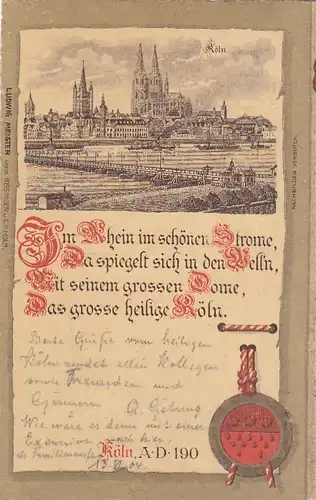 Köln.
LUDWIG MEISTER
NACHBILDEN VERBOTEN.
Im Rhein im schönen Strome,
Da spiegelt sich in den Welln,
Mit seinem grossen Dome,
Das grosse heilige Köln.
Beste Grüße vom heiligen
Köln sendet allen Kollegen
sowie Freunden und
Gönnern
Wie wäre es denn mit einer
Exkursion
Köln, A·D·190
04